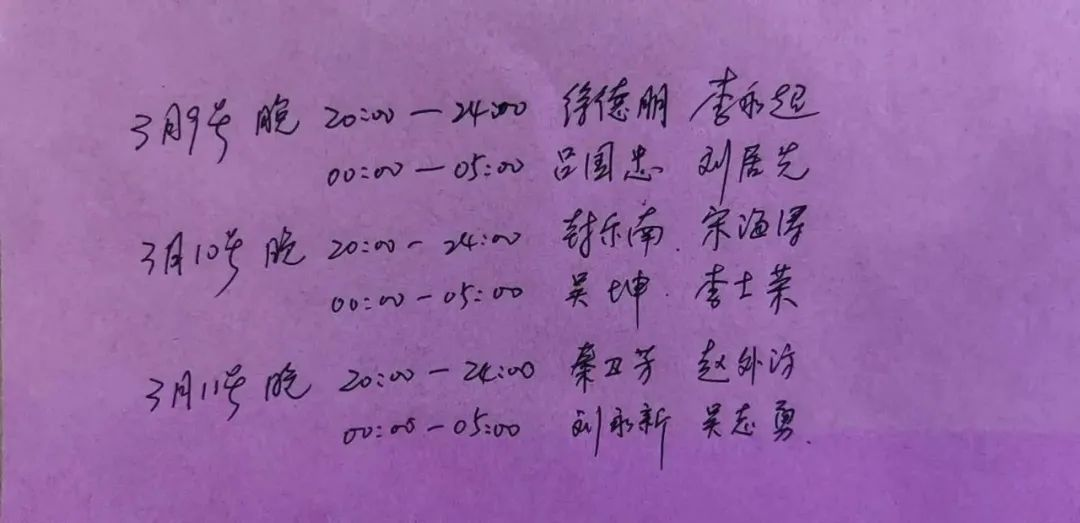 3月9号 晚 20:00—24:00 徐德朋 李永超
00:00—05:00 吕国忠 刘居先
3月10号 晚 20:00—24:00 封乐南 宋海涛
00:00—05:00 吴坤 李士荣
3月11号 晚 20:00—24:00 秦卫芳 赵外访
00:00—05:00 刘永新 吴志勇